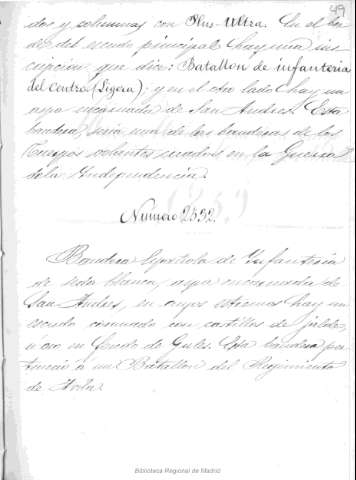 49
dos y columnas con Plus-Ultra. En el bor
de del escudo principal hay una ins
cripcion que dice: Batallon de infanteria
del centro (Ligera) y en el otro lado hay un
aspa encarnada de San Andres. Esta
bandera seria una de las banderas de los
Cuerpos volantes creados en la Guerra
de la Independencia.
Numero 2332.
Bandera Española de Infanteria
de seda blanca, aspa encarnada de
San Andres, en cuyos estremos hay un
escudo coronado con castillos de
u oro en fondo de Gules. Esta bandera per
tenecio a un Batallon del Regimiento
de Avila.
Biblioteca Regional de Madrid